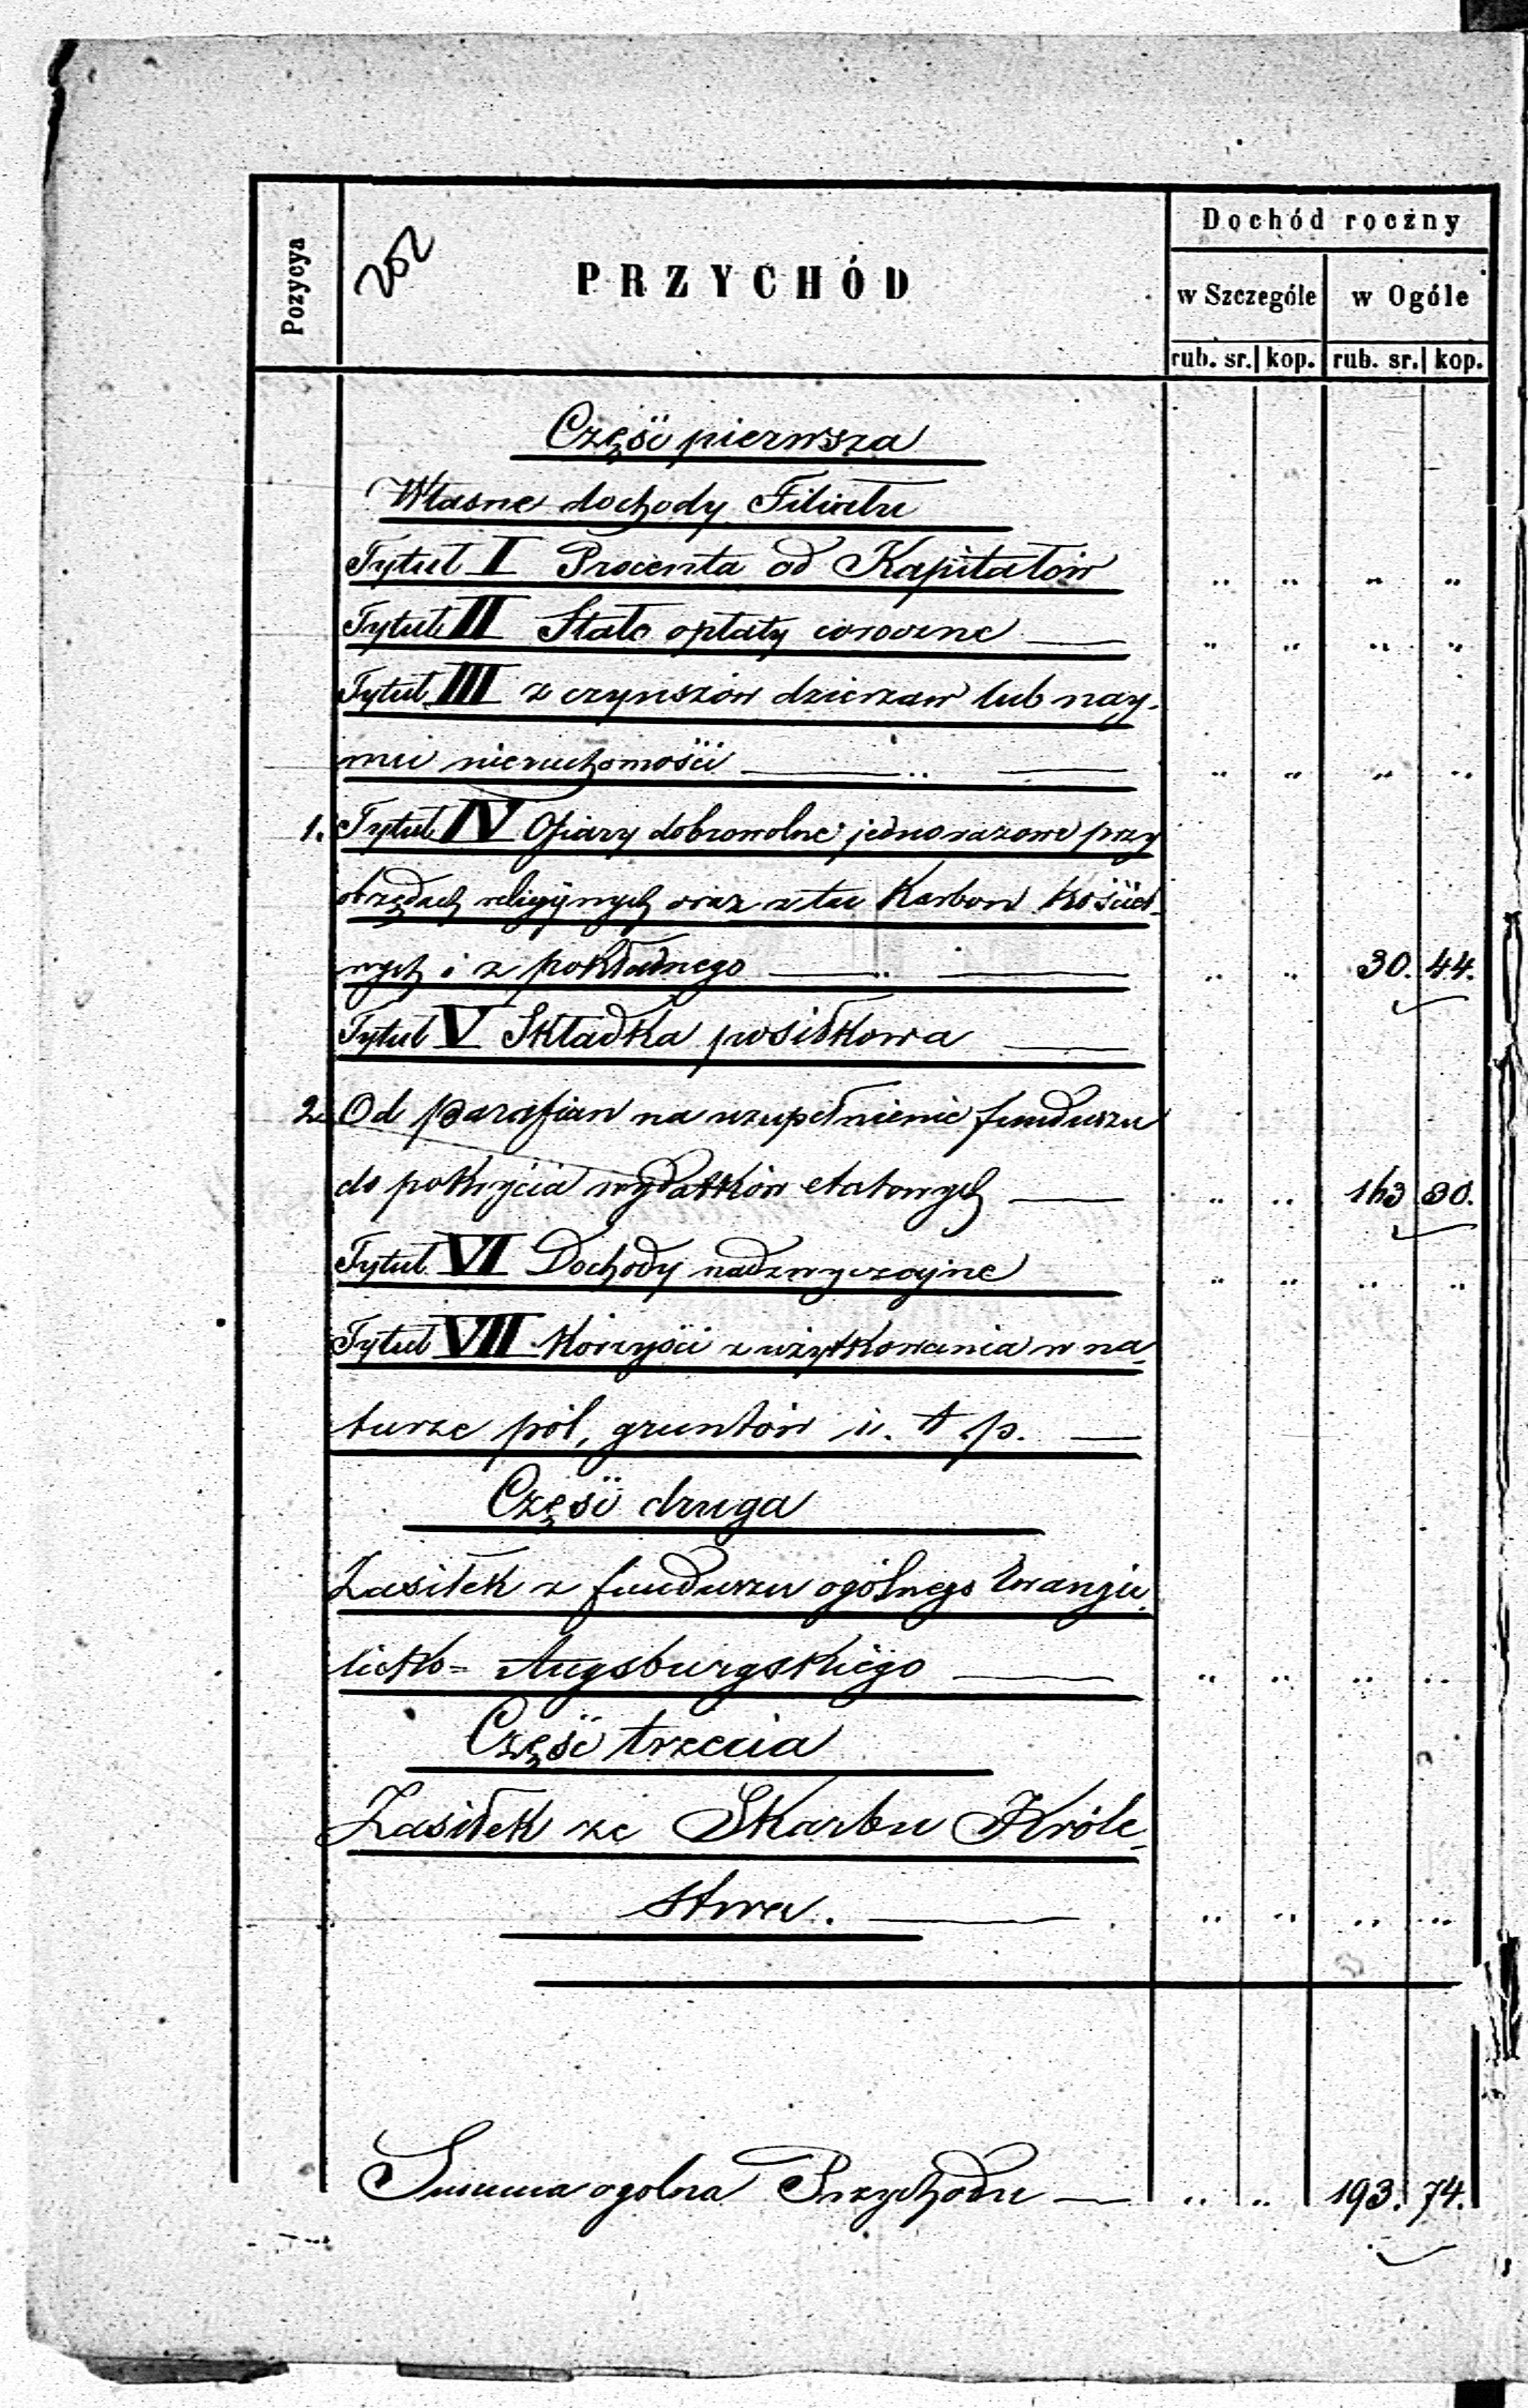 Pozycya
252
PRZYCHÓD
Dochód roczny
w Szczególe w Ogóle
rub. sr. kop. rub. sr. kop.
Część pierwsza
Własne dochody Filiału
Tytuł I Procenta od Kapitałów " " " "
Tytuł II Stałe opłaty coroczne " " " "
Tytuł III z czynszów dzierżaw lub nay-
mu nieruchomości " " " "
1. Tytuł IV Ofiary dobrowolne jednorazowe przy
obrzędach religijnych oraz z Karbon Kościel-
nych i z pokładnego " " 30. 44.
Tytuł V Składka posiłkowa
2. Od parafian na uzupełnienie funduszu
do pokrycia wydatków etatowych " " 163 30.
Tytuł VI Dochody nadzwyczajne " " " "
Tytuł VII Korzyści z użytkowania w na-
turze pól, gruntów i. t. p.
Część druga
Zasiłek z funduszu ogólnego Ewangie-
licko= Augsburgskiego " " " "
Część trzecia
Zasiłek ze Skarbu Króle-
stwa. " " " "
Summa ogolna Przychodu " " 193. 74.